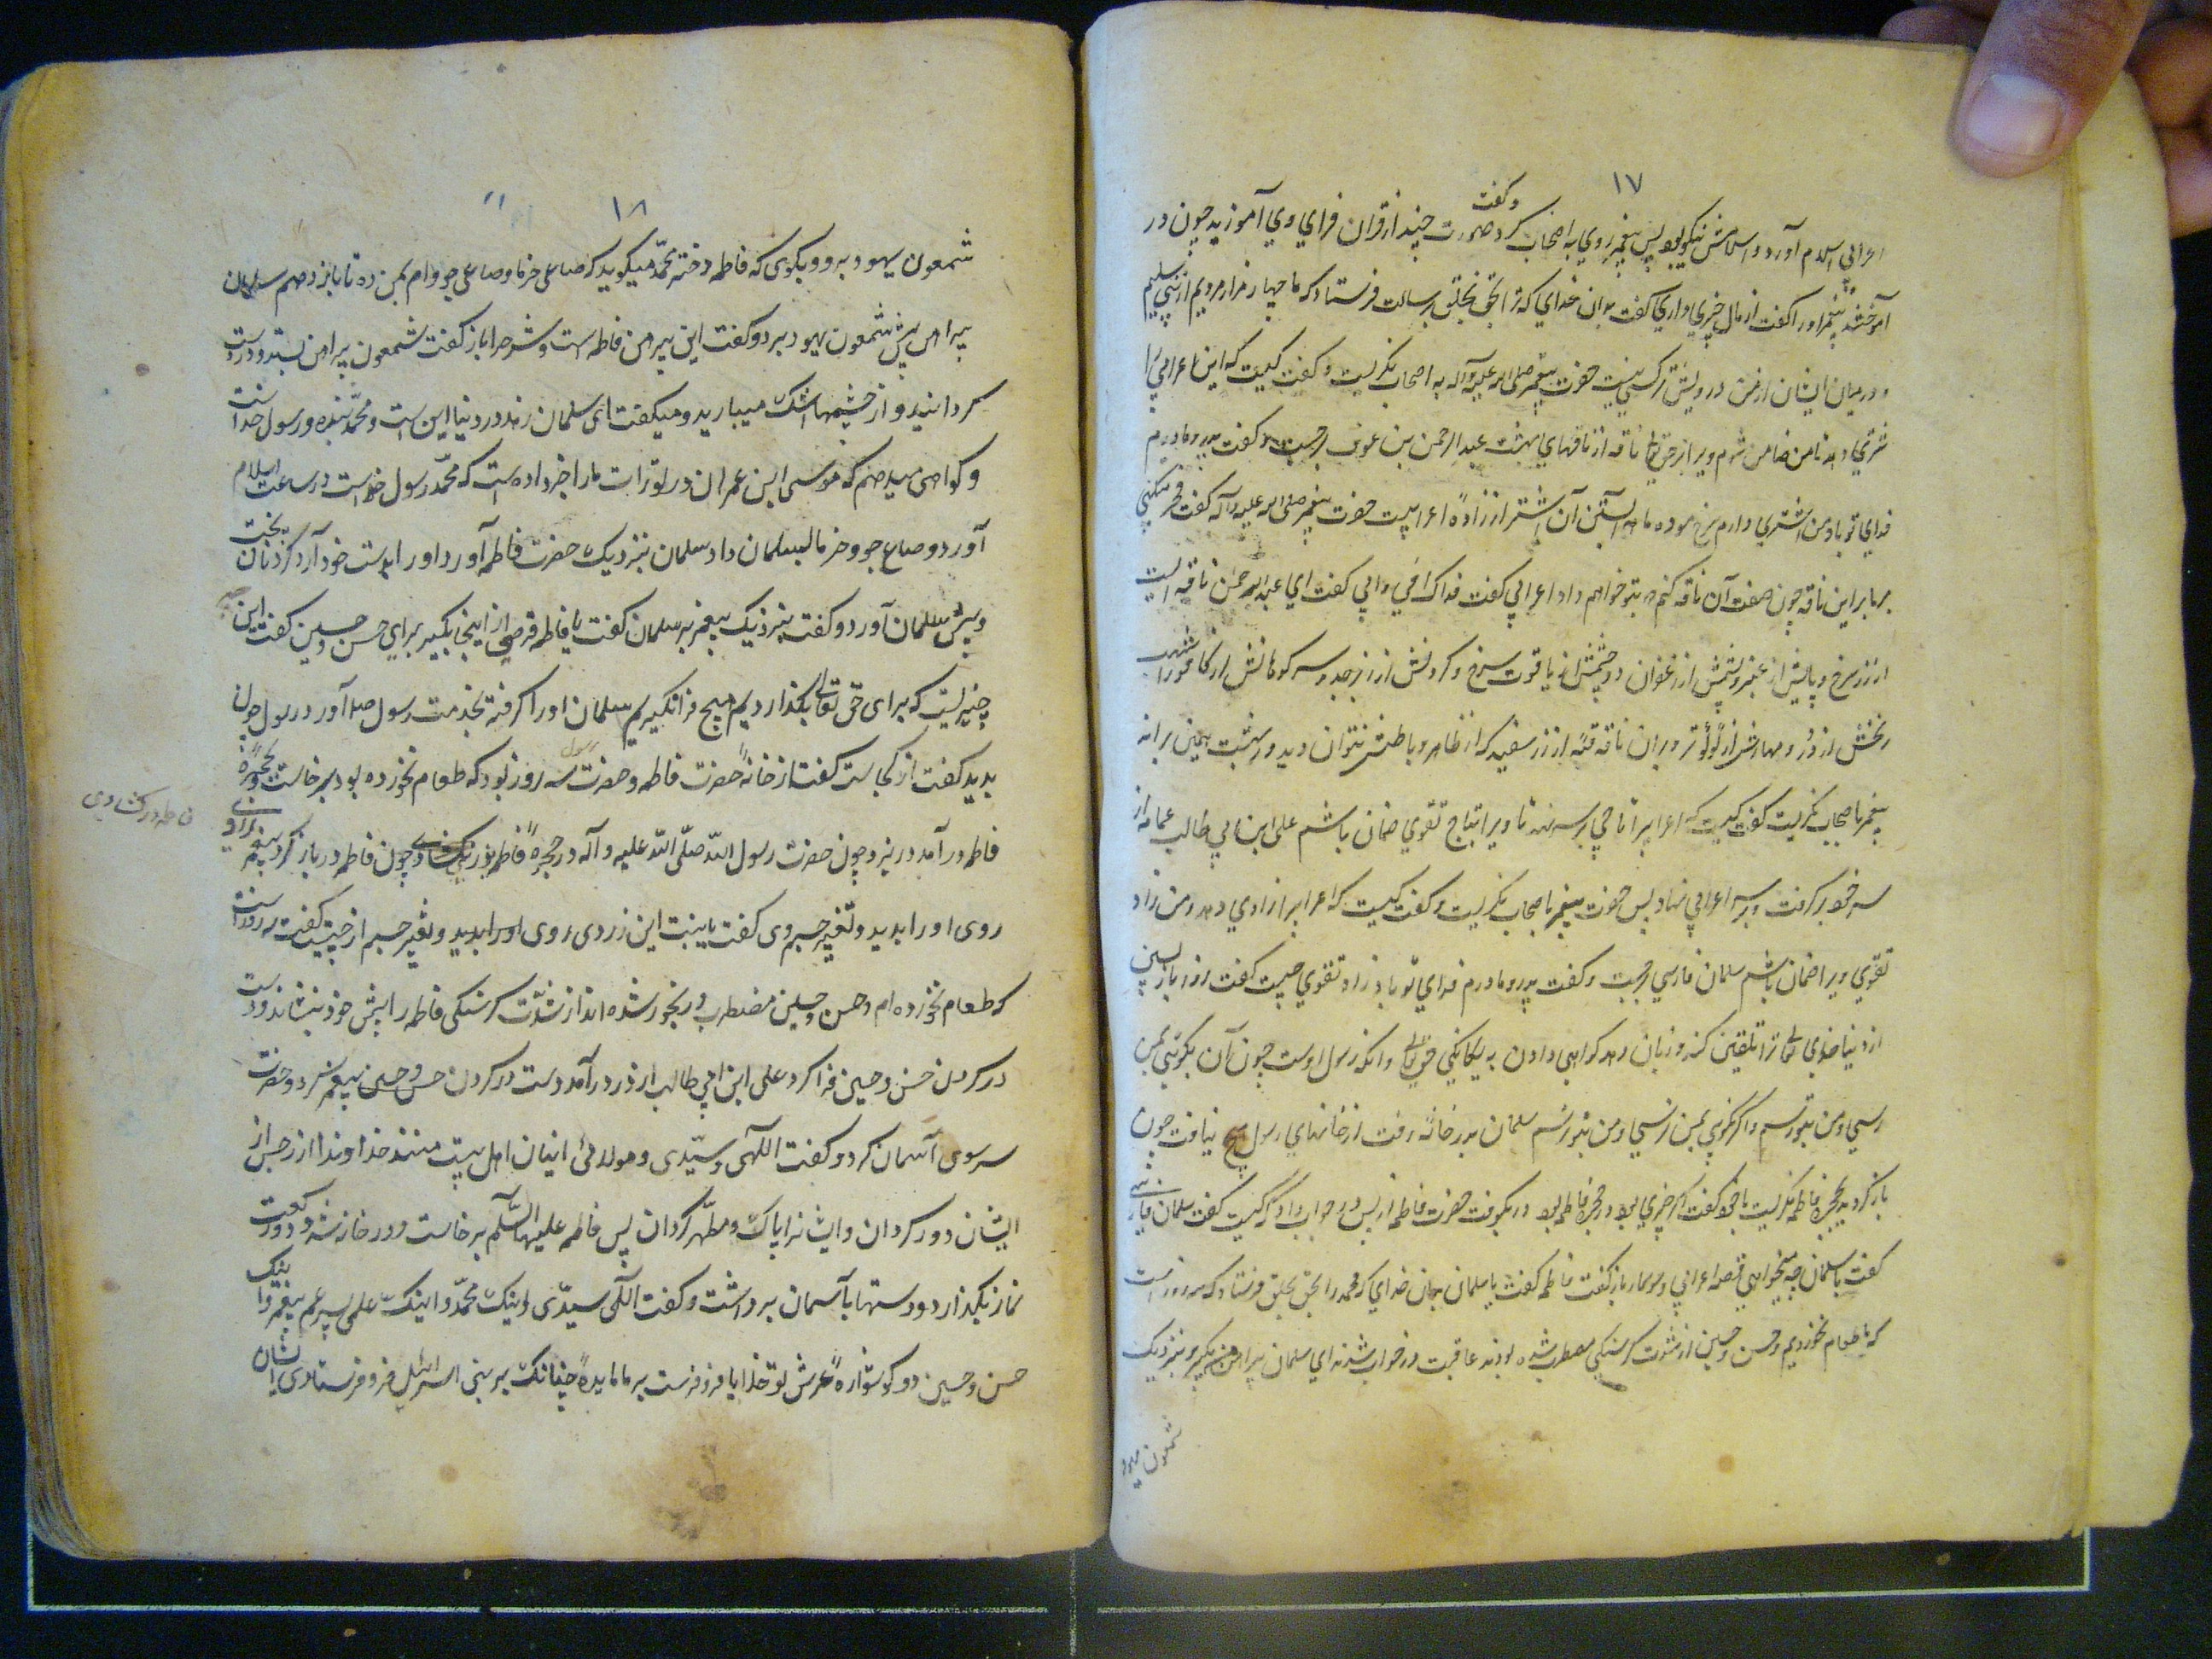 ۱۷
و گفت
اعرابی اسلام آورد و اسلامش نیکو بود پس پیغمبر روی به اصحاب کرد صورت چند از قران فرای وی آموزید چون در
آموختند پیغمبر او را گفت از مال چیزی داری گفت بدان خدای که ترا بحق بخلق برسالت فرستاد که ما چهار هزار مردیم از بنی سلیم
و در میان ایشان از من درویش تر کسی نیست حضرت پیغمبر صلی الله علیه و آله به اصحاب نگریست و گفت کیست که این اعرابی را
شتری دهد تا من ضامن شوم ویرا از حق تعالی ناقه از ناقهای بهشت عبد الرحمن بن عوف برجست و گفت پدر و مادرم
فدای تو باد من اشتری دارم سرخ موده ماهه آبستن آن اشتر از زاده اعرابیست حضرت پیغمبر صلی الله علیه و آله گفت فخر میکنی
برابر این ناقه چون صفت آن ناقه کنم که بتو خواهم داد اعرابی گفت فداک امی و ابی گفت ای عبد الرحمن ناقه ایست
از زر سرخ و پایش از عنبر و پشمش از زعفران و چشمش از یاقوت سرخ و گردنش از زبرجد و کوهانش از کافور اشهب
ز نخش از در و مهارش از لؤلؤ تر و بران ناقه قبه از زر سفید که از ظاهر و باطنش بتوان دید و در بهشت همین برانه
پیغمبر باصحاب نگریست گفت کیست که اعرابیرا تاجی بر سر نهد تا ویرا بتاج تقوی ضمان باشم علی ابن ابی طالب عمامه از
سر خود بر گرفت و بر سر اعرابی نهاد پس حضرت پیغمبر باصحاب نگریست و گفت کیست که اعرابیرا زادی دهد و من زاد
تقوی ویرا ضمان باشم سلمان فارسی برجست و گفت پدر و مادرم فدای تو باد زاد تقوی چیست گفت روز بازپسین
از دنیا خدای تعالی ترا تلقین کند و زبان دهد گواهی دادن به یگانگی حق تعالی و انکه رسول اوست چون آن بگوئی بمن
رسی و من بتو رسم و اگر نگویی بمن نرسی و من بتو نرسم سلمان بدر خانه رفت از خانهای رسول هیچ نیافت چون
باز گردید بحجره فاطمه نگریست با خود گفت اگر چیزی بود در حجره فاطمه بود در بکوفت حضرت فاطمه از پس در جواب داد که کیست گفت سلمان فارسی
گفت یا سلمان چه میخواهی قصه اعرابی و سوسمار باز گفت فاطمه گفت یا سلمان بدان خدای که محمد را بحق بخلق فرستاد که سه روز است
که ما طعام نخوردیم و حسن و حسین از شدت گرسنگی مضطرب شده بودند عاقبت در خواب شدند ای سلمان پیراهن من بگیر و بنزدیک
شمعون یهود
۱۸
شمعون یهود برو و بگوی که فاطمه دختر محمد میگوید که صاعی خرما و صاعی جو وام بمن ده تا باز دهم سلمان
پیراهن پیش شمعون یهود برد و گفت این پیرهن فاطمه است و شرح را باز گفت شمعون پیراهن بستد و در دست
گردانید و از چشمها اشک میبارید و میگفت ای سلمان زهد در دنیا این است و محمد بنده و رسول خدا است
و گواهی میدهم که موسی ابن عمران در تورات ما را خبر داده است که محمد رسول خداست در ساعت اسلام
آورد و صاع جو و خرما بسلمان داد سلمان بنزدیک حضرت فاطمه آورد او را بدست خود آرد کرد نان بخت
و پیش سلمان آورد و گفت بنزدیک پیغمبر بر سلمان گفت یا فاطمه قرصی از اینجا بگیر برای حسن و حسین گفت این
چیزیست که برای حق تعالی بگذاردیم هیچ فرا نگیریم سلمان او را گرفته بخدمت رسول صلا آورد رسول چون
بدید گفت از کجاست گفت از خانهٔ حضرت فاطمه و حضرت رسول سه روز بود که طعام نخورده بود برخاست و بحجرهٔ
فاطمه در آمد در بزد چون حضرت رسول الله صلّی الله علیه و آله در حجرهٔ فاطمه بزد چون فاطمه در باز کرد پیغمبر
فاطمه در گشادی
روی او را بدید و تغیر جسم وی گفت یا بنت این زردی روی او را بدید و تغیر جسم از چیست گفت سه روز است
که طعام نخورده ام و حسن و حسین مضطرب و رنجور شده اند از شدّت گرسنگی فاطمه را پیش خود بنشاند و دست
در گردن حسن و حسین فرا کرد علی ابن ابی طالب از در در آمد دست در گردن حسن و حسین پیغمبر شد و حضرت
سر سوی آسمان کرد و گفت اللهی و سیّدی و مولائی اینان اهل بیت منند خداوندا از رجس از
ایشان دور گردان و ایشانرا پاک و مطهّر گردان پس فاطمه علیها السّلم برخاست و در خانه شد و دو رکعت
نماز بگذارد و دستها بآسمان برداشت و گفت الهی سیدّی اینک محمّد و اینک علی پسر عم پیغمبر و اینک
حسن و حسین دو گوشوارهٔ عرش تو خدایا فرو فرست بر ما مایدهٔ چنانک بر بنی اسرائیل فرو فرستادی ایشان